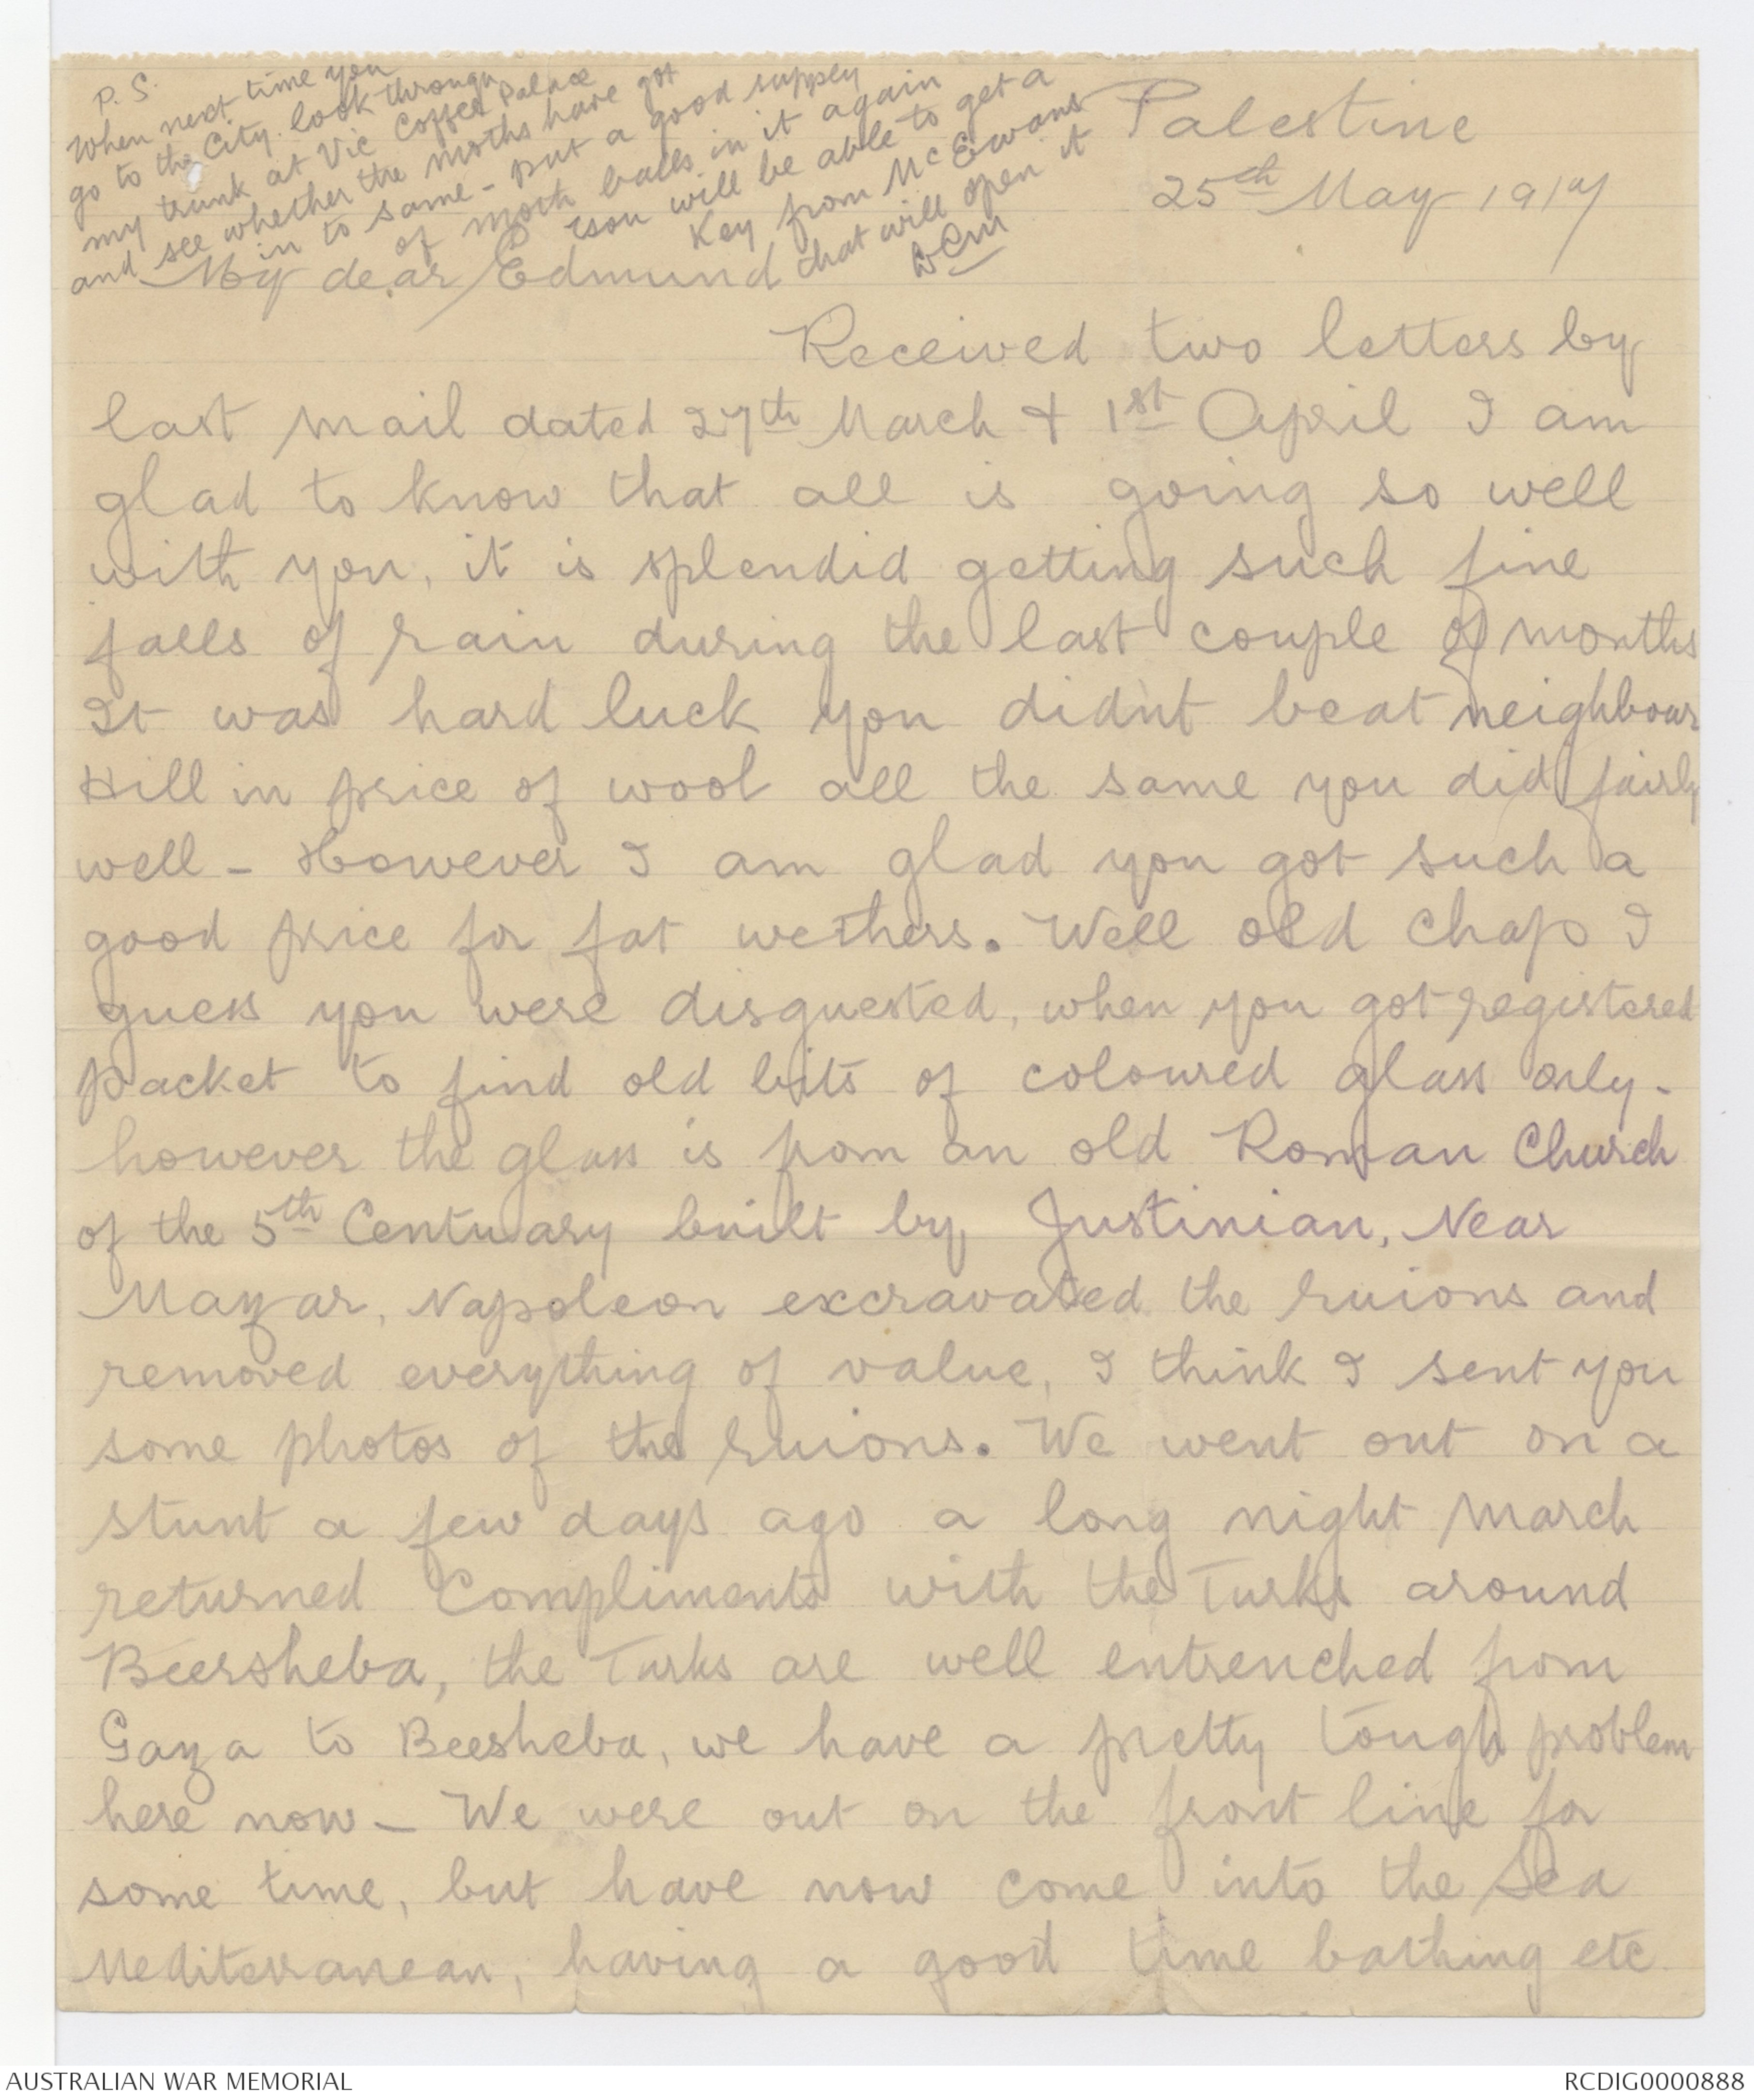 P.S.
When next time you
go to the City look through
my trunk at Vic Coffee Palace
and see whether the moths have got
in to same - put a good supply
of moth balls in it again
you will be able to get a
Key from McEwans
that will open it
DCM
Palestine
25th May 1917
My dear Edmund
Received two letters by
last mail dated 27th March & 1st April I am
glad to know that all is going so well
with you, it is splendid getting such fine
falls of rain during the last couple of months
It was hard luck you didnt beat neighbour
Hill in price of wool all the same you did fairly
well - However I am glad you got such a
good price for fat wethers. Well old chap I
guess you were disguested, when you got registered
packet to find old bits of coloured glass only -
however the glass is from an old Roman Church
of the 5th Centuary built by Justinian, Near
Mazar, Napoleon excravated the ruions and
removed everything of value, I think I sent you
some photos of the ruions. We went out on a
stunt a few days ago a long night march
returned Compliments with the Turks around
Beersheba, the Turks are well entrenched from
Gaza to Beesheba, we have a pretty tough problem
here now - We were out on the front line for
some time, but have now come into the Sea
Mediterranean, having a good time bathing etc.
AUSTRALIAN WAR MEMORIAL
RCDIG0000888